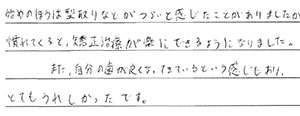 始めのほうは型取りなどがつらいと感じたことがありましたが
慣れてくると、矯正治療が楽にできるようになりました。
また、自分の歯が良くなってきているという感じもあり、
とてもうれしかったです。